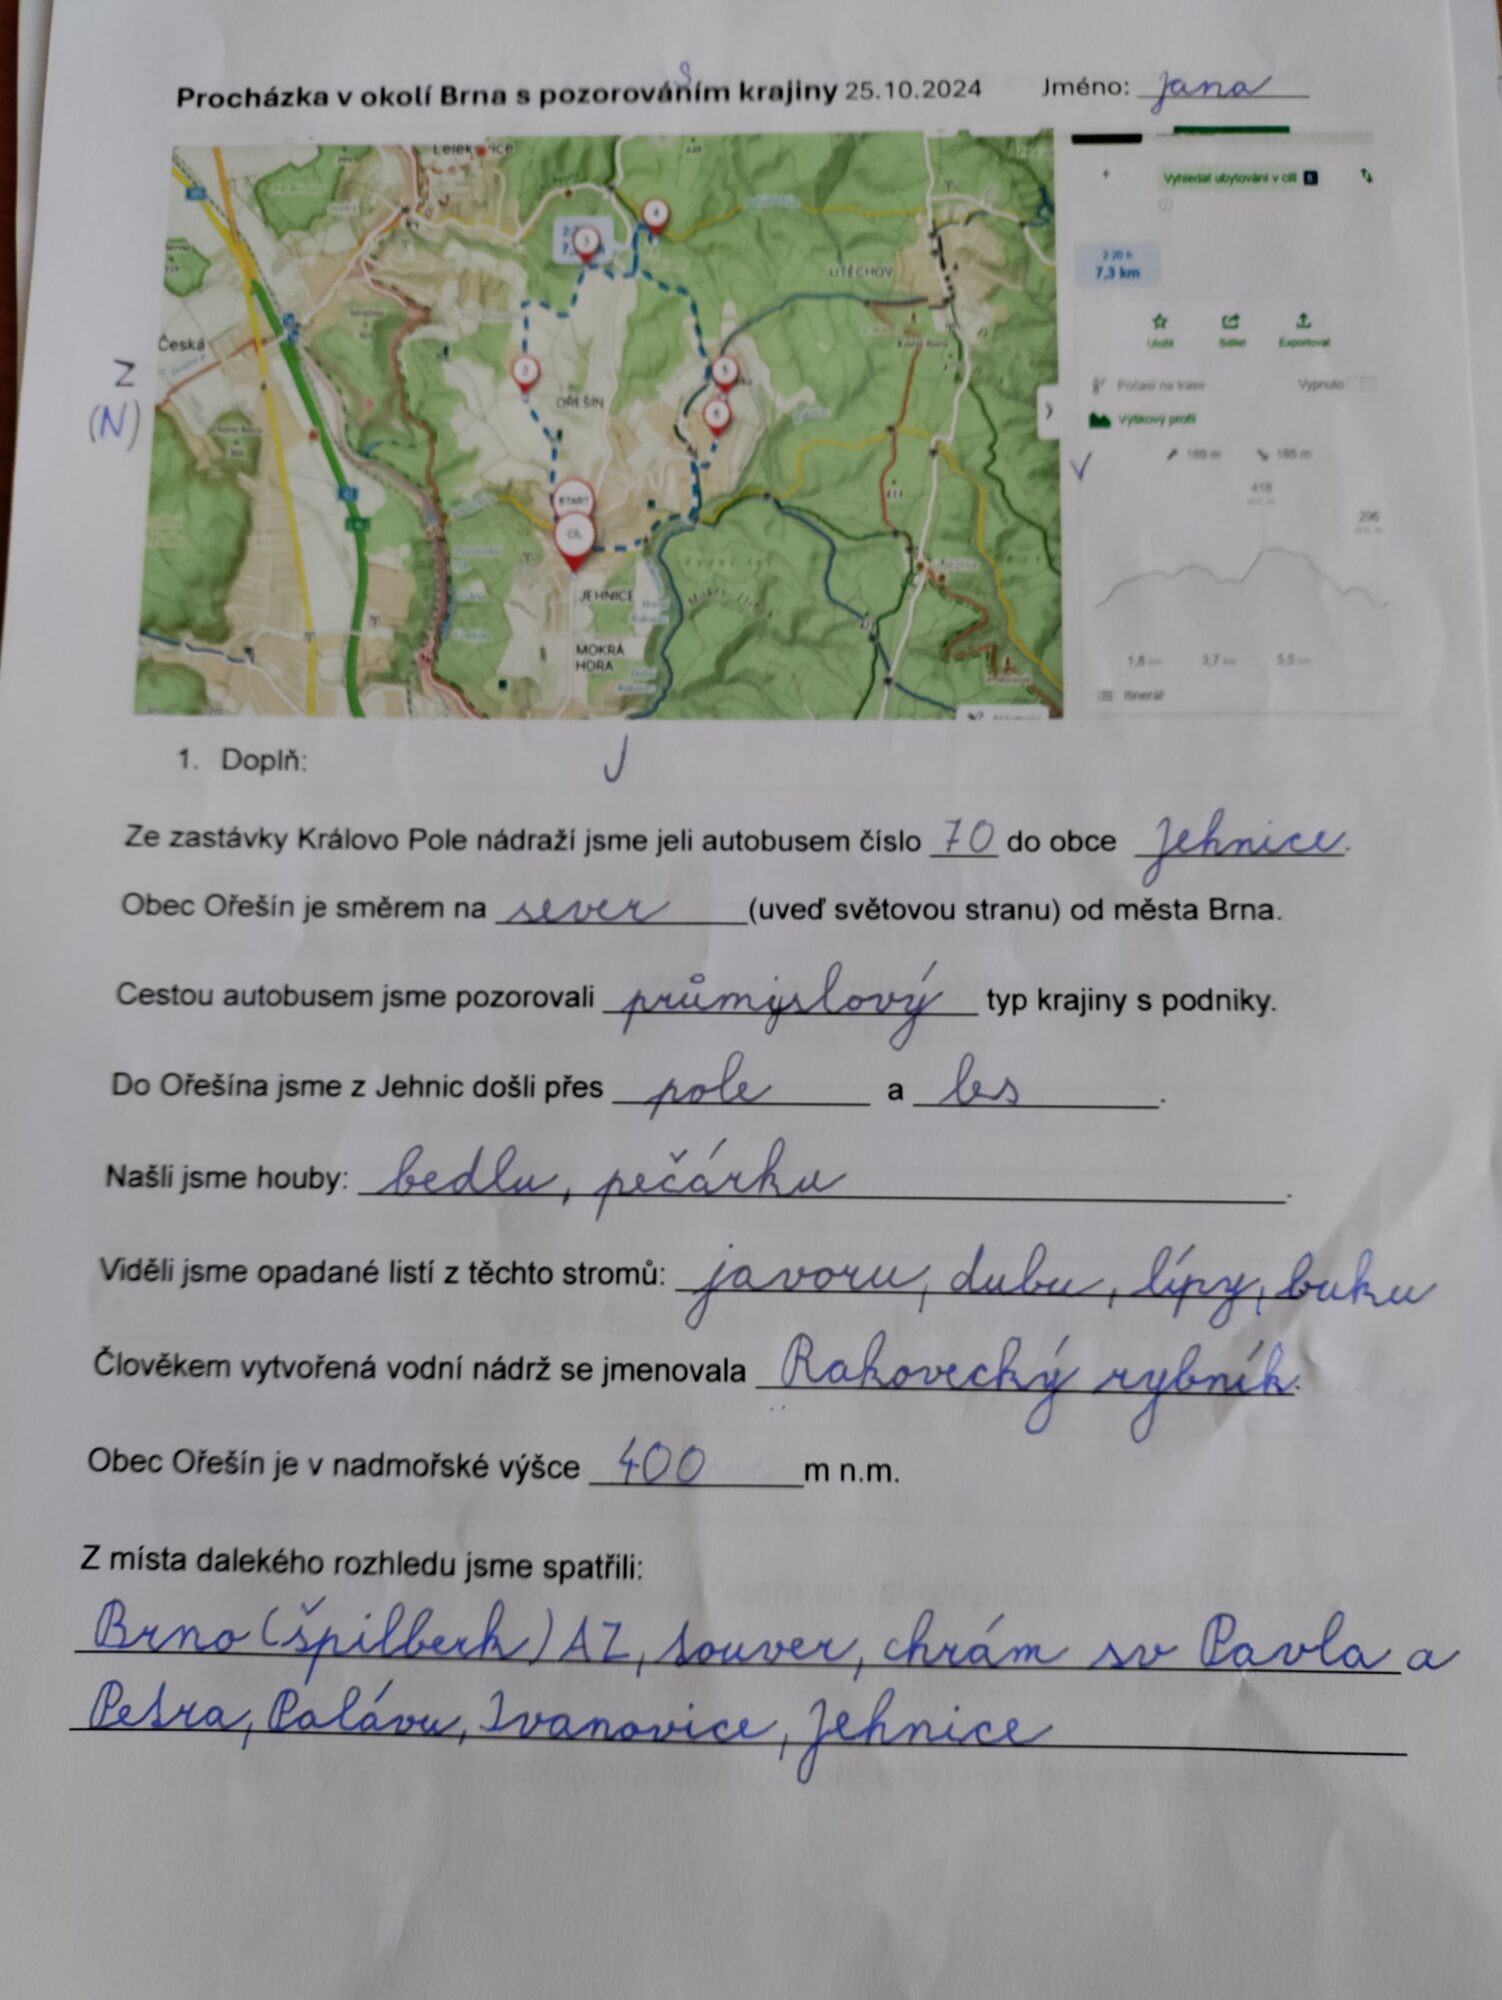 S
Procházka v okolí Brna s pozorováním krajiny 25.10.2024 Jméno: Jana
Vyhledat ubytování v cíli
4
3
ÚTĚCHOV
2 20 h
7,3 km
Uložit Sdílet Exportovat
Česká
Z
(N)
2
5
OŘEŠÍN
6
Počasí na trase Vypnuto
Výškový profil
V
189 m 185 m
START
418
411
296
CÍL
JEHNICE
MOKRÁ
HORA
1,8 km 3,7 km 5,5 km
Itinerář
J
1. Doplň:
Ze zastávky Královo Pole nádraží jsme jeli autobusem číslo 70 do obce Jehnice.
Obec Ořešín je směrem na sever (uveď světovou stranu) od města Brna.
Cestou autobusem jsme pozorovali průmyslový typ krajiny s podniky.
Do Ořešína jsme z Jehnic došli přes pole a les.
Našli jsme houby: bedlu, pečárku.
Viděli jsme opadané listí z těchto stromů: javoru, dubu, lípy, buku
Člověkem vytvořená vodní nádrž se jmenovala Rakovecký rybník.
Obec Ořešín je v nadmořské výšce 400 m n.m.
Z místa dalekého rozhledu jsme spatřili:
Brno (špilberk) AZ, souver, chrám sv Pavla a
Petra, Palávu, Ivanovice, Jehnice